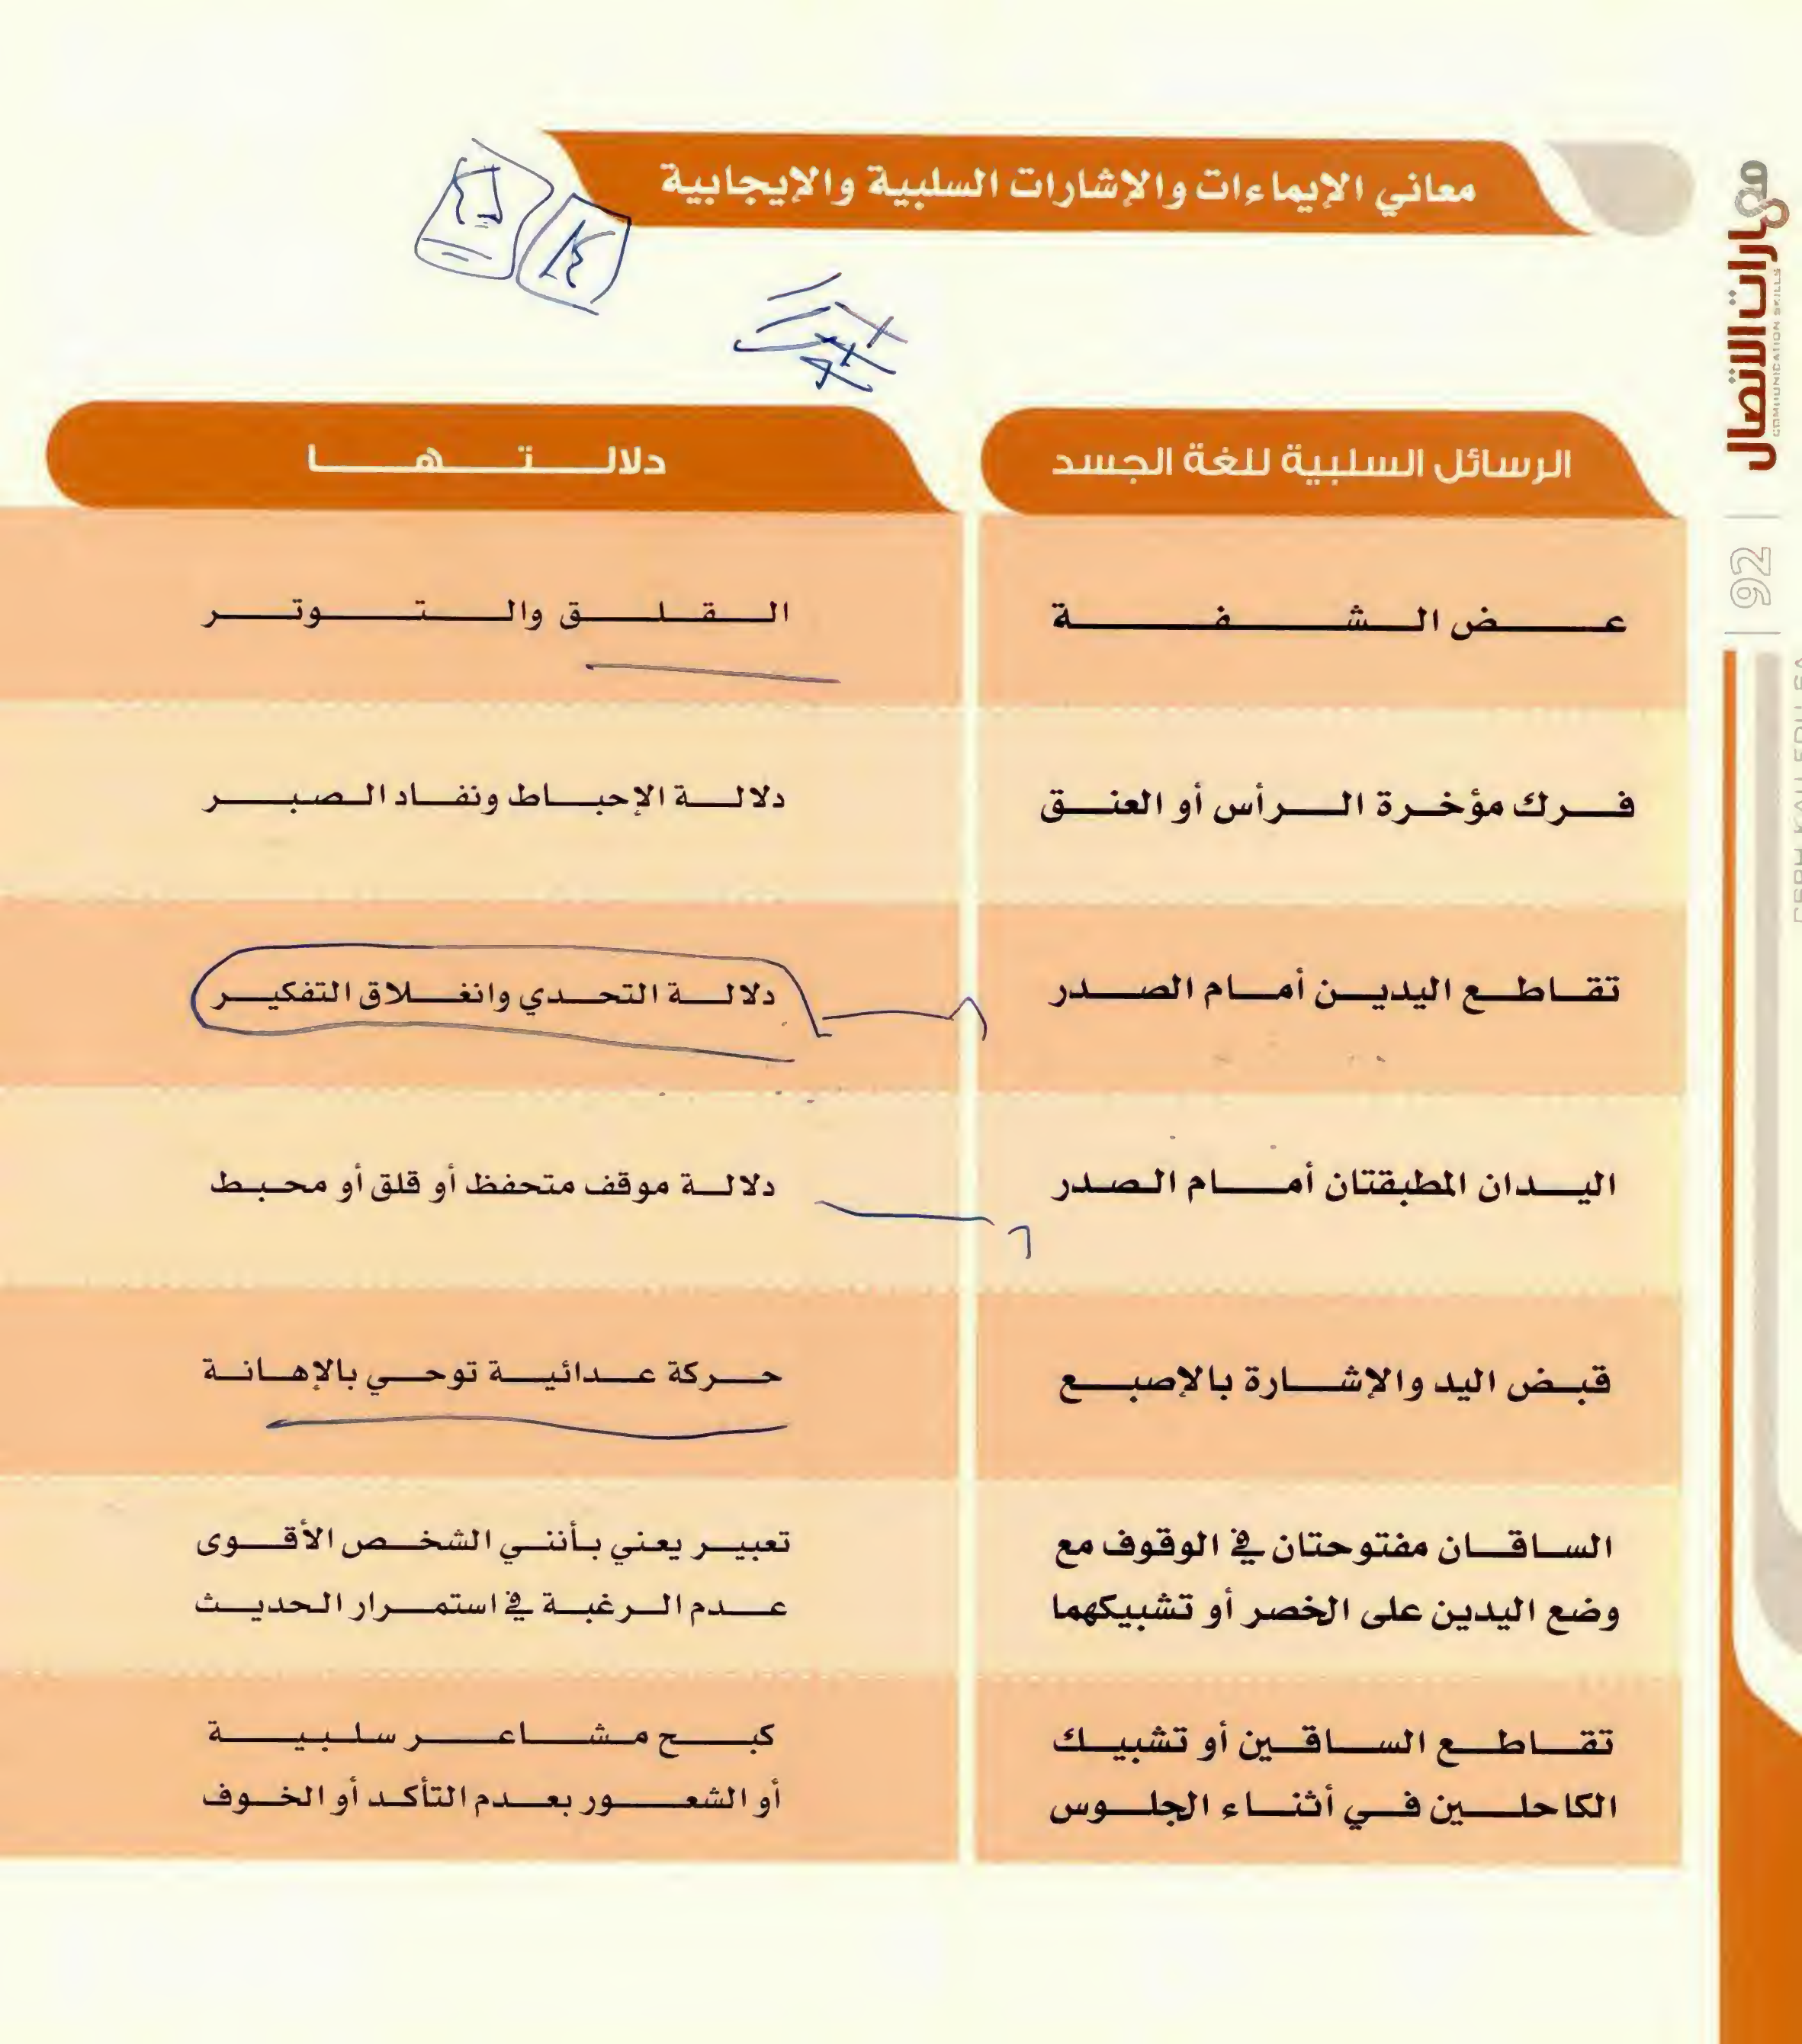 معاني الإيماءات والإشارات السلبية والإيجابية
مهارات الاتصال
COMMUNICATION SKILLS
92
الرسائل السلبية للغة الجسد
دلالتها
عض الشفة
القلق والتوتر
فرك مؤخرة الرأس أو العنق
دلالة الإحباط ونفاد الصبر
تقاطع اليدين أمام الصدر
دلالة التحدي وانغلاق التفكير
اليدان المطبقتان أمام الصدر
دلالة موقف متحفظ أو قلق أو محبط
قبض اليد والإشارة بالإصبع
حركة عدائية توحي بالإهانة
الساقان مفتوحتان في الوقوف مع
وضع اليدين على الخصر أو تشبيكهما
تعبير يعني بأنني الشخص الأقوى
عدم الرغبة في استمرار الحديث
تقاطع الساقين أو تشبيك
الكاحلين في أثناء الجلوس
كبح مشاعر سلبية
أو الشعور بعدم التأكد أو الخوف